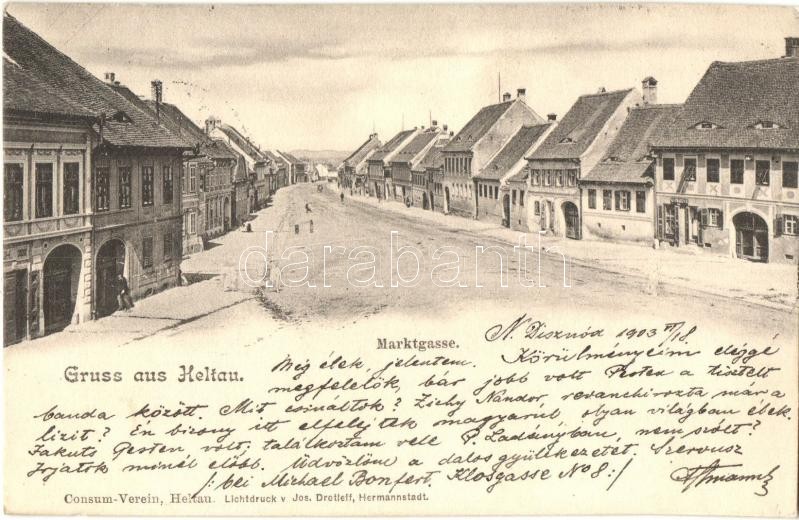 darabanth
Marktgasse.
Gruss aus Heltau.
N. Disznód 1903 VI/18
Még élek, jelentem. Körülményeim eléggé
megfelelők, bár jobb volt Pesten a tisztelt
banda között. Mit csináltok? Zichy Nándor, revanchirozta már a
lizit? Én bizony itt elfelejtek magyarul, olyan világban élek.
Jakuts Pesten volt, találkoztam vele P. Ladányban, nem szólt?
Irjatok minél előbb. Üdvözlöm a dalos gyülekezetet. Szervusz
/: bei Michael Bonfert. Klosgasse No 8 :/
Consum-Verein, Heltau. Lichtdruck v Jos. Drotleff, Hermannstadt.